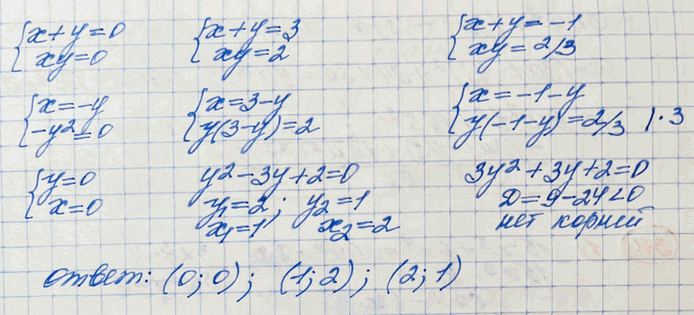 { x+y=0 { x+y=3 { x+y=-1
xy=0 xy=2 xy=2/3
{ x=-y { x=3-y { x=-1-y
-y²=0 y(3-y)=2 y(-1-y)=2/3 |·3
{ y=0 y²-3y+2=0 3y²+3y+2=0
x=0 y₁=2; y₂=1 D=9-24<0
x₁=1 x₂=2 нет корней
ответ: (0;0); (1;2); (2;1)